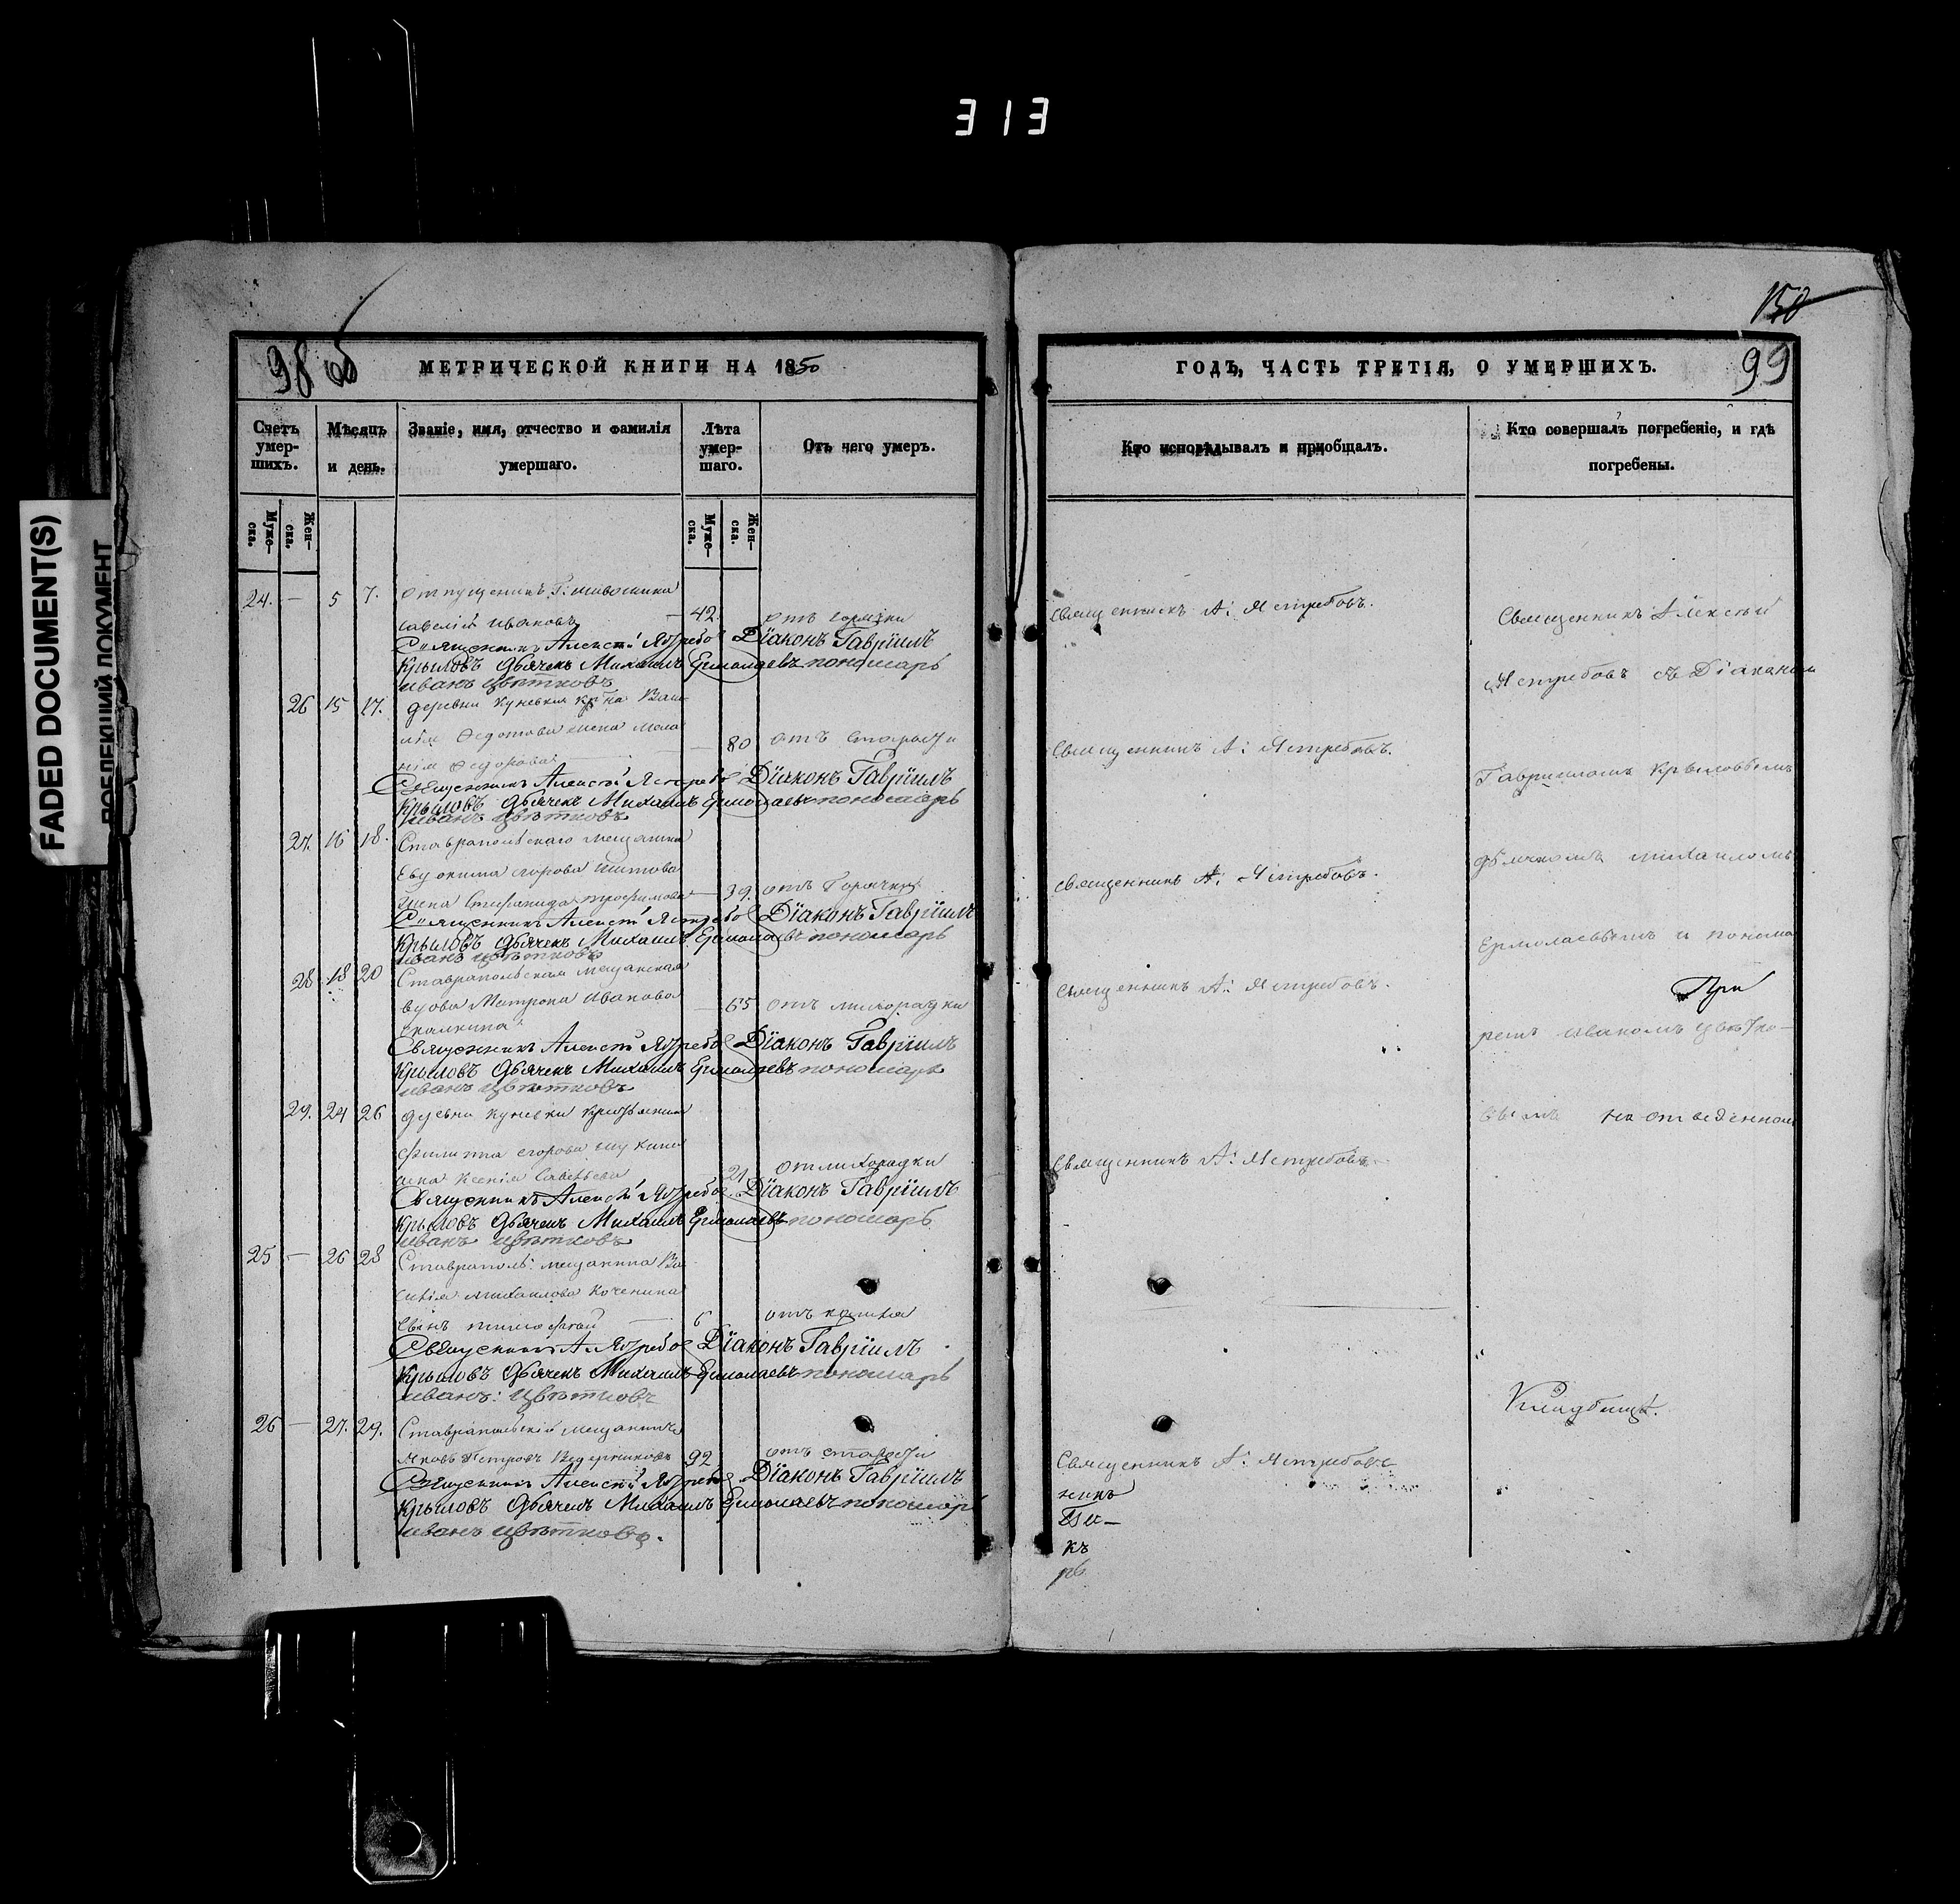 313
FADED DOCUMENT(S)
ДОКУМЕНТ
150
98 об
МЕТРИЧЕСКОЙ КНИГИ НА 1850
ГОДЪ, ЧАСТЬ ТРЕТІЯ, О УМЕРШИХЪ.
99
Счетъ умер-шихъ.
Мѣсяцъ и день.
Званіе, имя, отчество и фамилія умершаго.
Лѣта умер-шаго.
Отъ чего умеръ.
Кто исповѣдывалъ и пріобщалъ.
Кто совершалъ погребеніе, и гдѣ погребены.
Муже-ска.
Жен-ска.
Муже-ска.
Жен-ска.
24. — 5 7. отпущеникъ Г:
Савелій Ивановъ — 42. отъ горячки
Священникъ А: Ястребовъ.
Священникъ Алексѣй Ястребовъ Діаконъ Гавріилъ
Крыловъ Дьячекъ Михаилъ Ермолаевъ пономарь
Иванъ Цвѣтковъ
26 15 17. деревни Куневки кр на Васи
лія Федотова жена Мела
нія Федорова — 80 отъ старости
Священникъ А: Ястребовъ.
Священникъ Алексѣй Ястребовъ Діаконъ Гавріилъ
Крыловъ Дьячекъ Михаилъ Ермолаевъ пономарь
Иванъ Цвѣтковъ
27. 16 18. Ставропольскаго мещанина
Евдокима Егорова
жена Степанида Трофимова — 39. отъ Горячки
священникъ А: Ястребовъ.
Священникъ Алексѣй Ястребовъ Діаконъ Гавріилъ
Крыловъ Дьячекъ Михаилъ Ермолаевъ пономарь
Иванъ Цвѣтковъ
28 18 20 Ставропольская мещанская
вдова Матрона Иванова
65 отъ лихорадки
Священникъ А: Ястребовъ.
Священникъ Алексѣй Ястребовъ Діаконъ Гавріилъ
Крыловъ Дьячекъ Михаилъ Ермолаевъ пономарь
Иванъ Цвѣтковъ
29. 24 26 деревни Куневки крестьянина
Филиппа Егорова
жена Ксенія Савельева 21 от лихорадки
Священникъ А: Ястребовъ
Священникъ Алексѣй Ястребовъ Діаконъ Гавріилъ
Крыловъ Дьячекъ Михаилъ Ермолаевъ пономарь
Иванъ Цвѣтковъ
25 — 26 28 Ставрополь: мещанина Ва
силія Михайлова Коченина
сынъ Тимофей — 6 отъ кашля
Священникъ А Ястребовъ Діаконъ Гавріилъ
Крыловъ Дьячекъ Михаилъ Ермолаевъ пономарь
Иванъ: Цвѣтковъ
26 — 27. 29. Ставропольскій мещанинъ
Яковъ Петровъ Ведерниковъ 92 отъ старости
Священникъ А: Ястребовъ
Священникъ Алексѣй Ястребовъ Діаконъ Гавріилъ
Крыловъ Дьячекъ Михаилъ Ермолаевъ пономарь
Иванъ Цвѣтковъ.
никъ
къ
рь
Священникъ Алексѣй
Ястребовъ съ Діакономъ
Гавріиломъ Крыловымъ
дьячкомъ михаиломъ
Ермолаевымъ и понома
При
ремъ иваномъ цвѣтко-
вымъ на отведенном
Кладбищѣ.